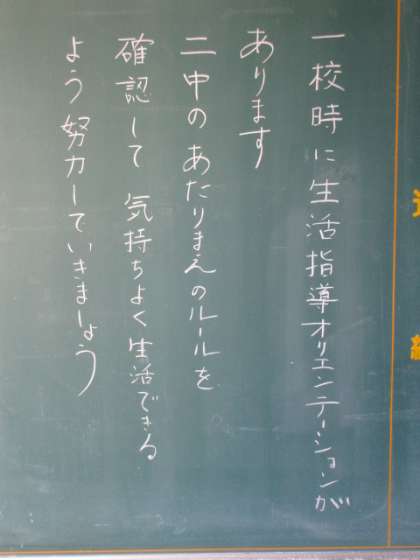 一校時に生活指導オリエンテーションが
あります
二中の あたりまえのルールを
確認して 気持ちよく生活できる
よう努力していきましょう